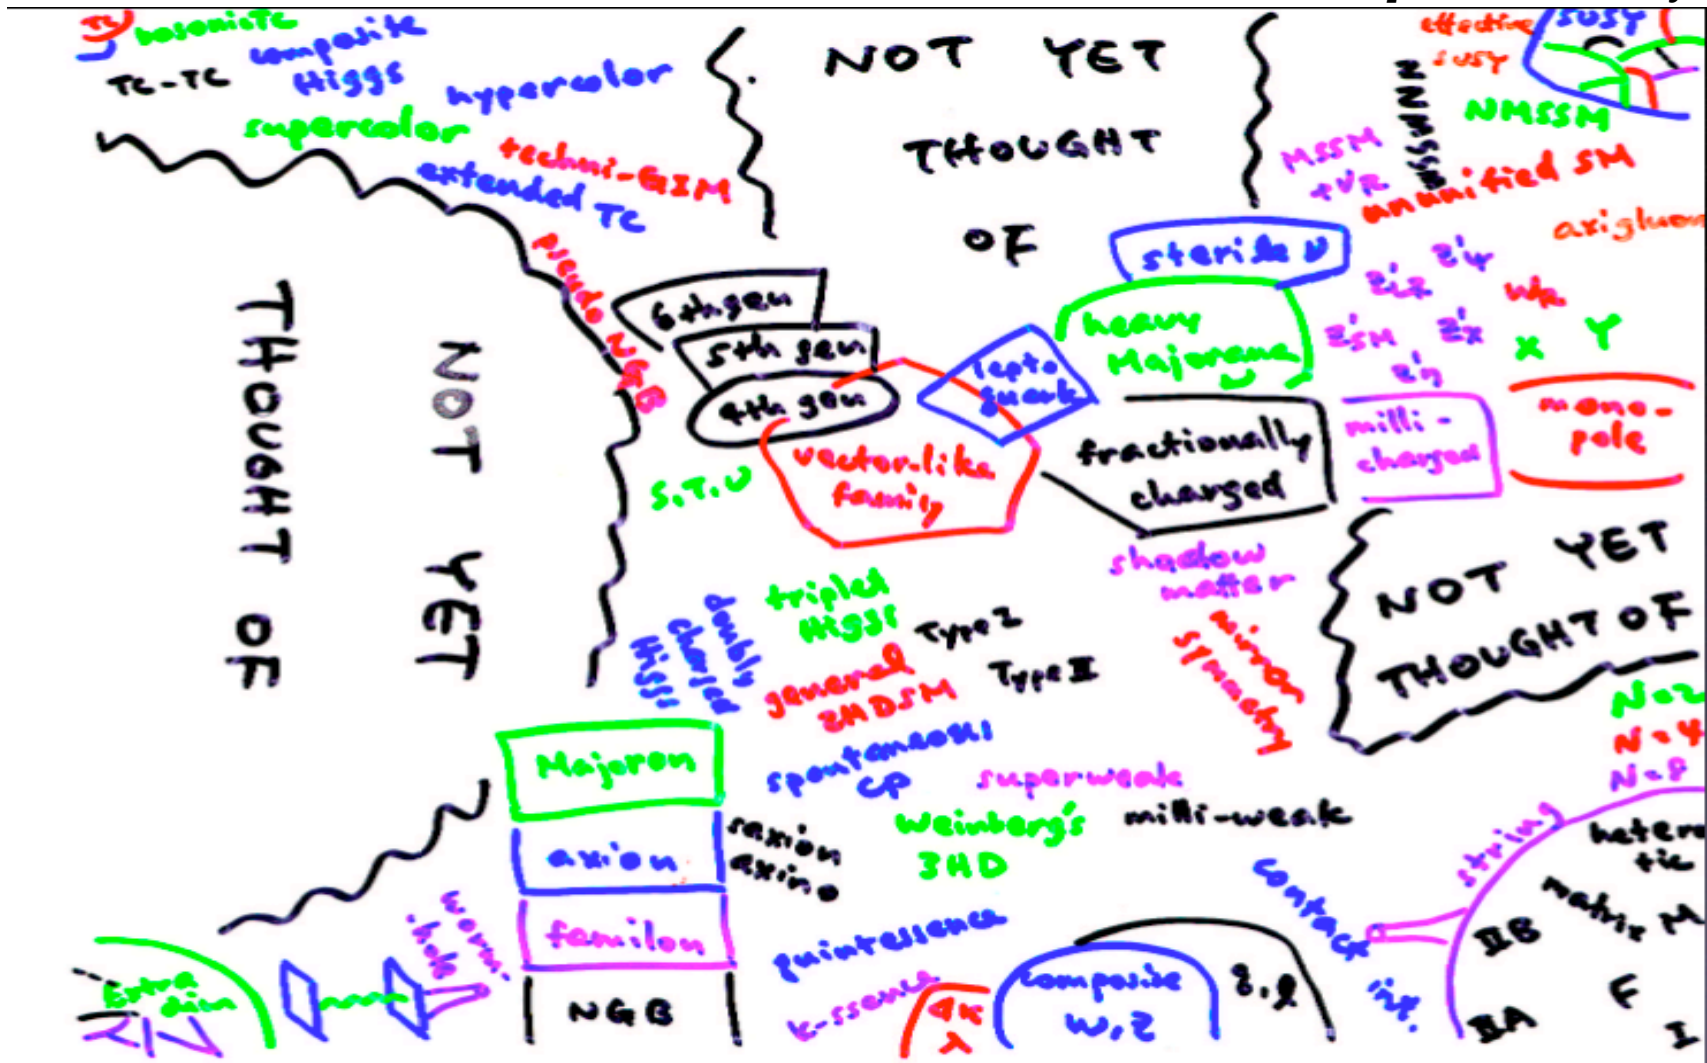 TC
bosonic TC
composite
Higgs
TC-TC
hypercolor
supercolor
techni-GIM
extended TC
pseudo NGB
NOT YET
THOUGHT
OF
effective
SUSY
SUSY
NNMSSM
NMSSM
MSSM
+νR
ununified SM
axigluon
sterile ν
heavy
Majorana
ν
Z'ψ
WR
Z'SM
Z'χ
Z'η
X Y
6th gen
5th gen
4th gen
lepto
quark
vector-like
family
fractionally
charged
milli-
charged
mono-
pole
S.T.U
NOT YET
THOUGHT OF
shadow
matter
mirror
symmetry
NOT YET
THOUGHT OF
triplet
Higgs
doubly
charged
Higgs
Type I
Type II
general
2HDSM
spontaneous
CP
superweak
milli-weak
Weinberg's
3HD
Majoron
axion
saxion
axino
familon
NGB
worm.
hole
Extra
dim
quintessence
k-ssence
composite
W,Z
q,l
contact
int.
N=2
N=4
N=8
string
hetero
tic
matrix M
IIB
F
IIA
I